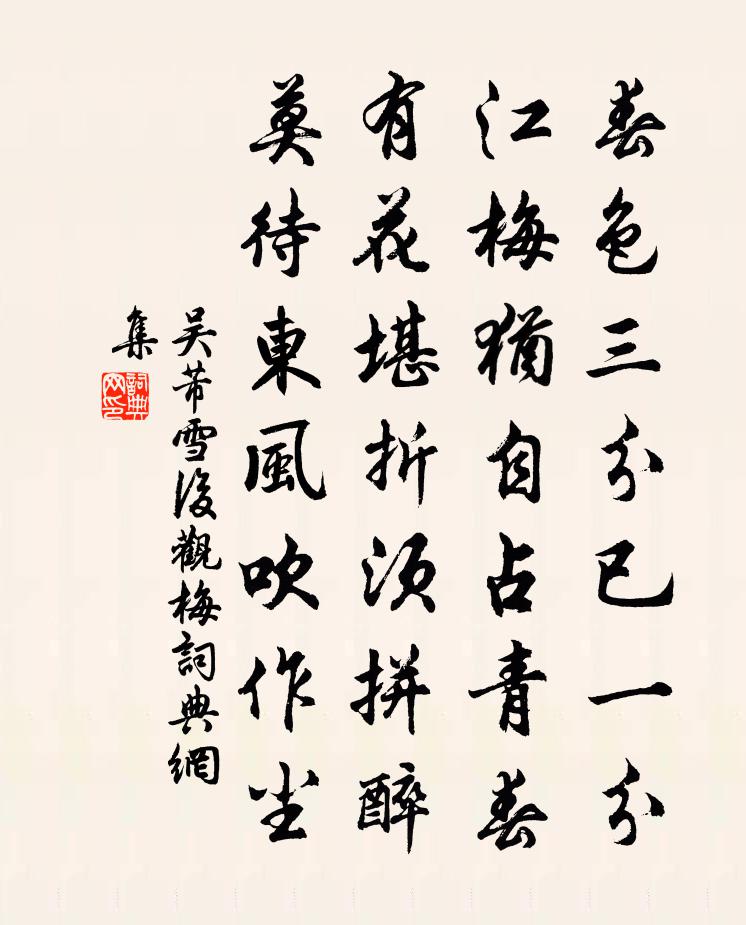 春色三分已一分
江梅猶自占青春
有花堪折須拼醉
莫待東風吹作尘
吴芾雪後觀梅詞典網
集
詞典
网印